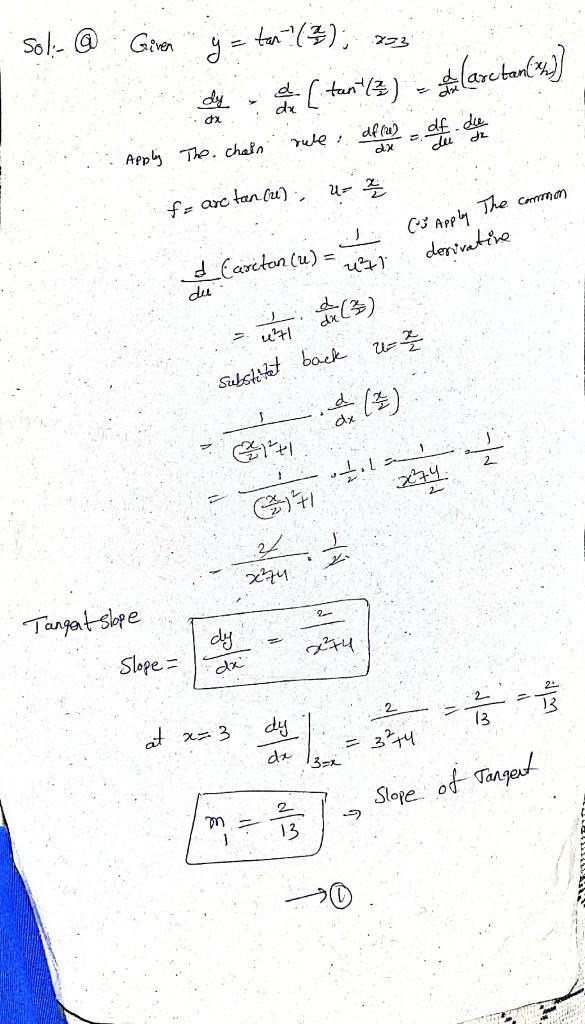 Sol:- (a) Given y = tan⁻¹(x/2), x=3
dy/dx = d/dx [tan⁻¹(x/2)) = d/dx (arctan(x/2)]
Apply The. chain rule : df(u)/dx = df/du . du/dx
f = arctan(u), u = x/2
d/du (arctan(u) = 1/(u²+1) (∵ Apply The common
derivative
= 1/(u²+1) . d/dx (x/2)
substitut back u = x/2
= 1/((x/2)²+1) . d/dx (x/2)
= 1/((x/2)²+1) . 1/2 . 1 = 1/((x²+4)/2) . 1/2
= 2/(x²+4) . 1/2
Tangent slope
Slope = dy/dx = 2/(x²+4)
at x=3 dy/dx |3=x = 2/(3²+4) = 2/13 = 2/13
m₁ = 2/13 → Slope of Tangent
→ ①